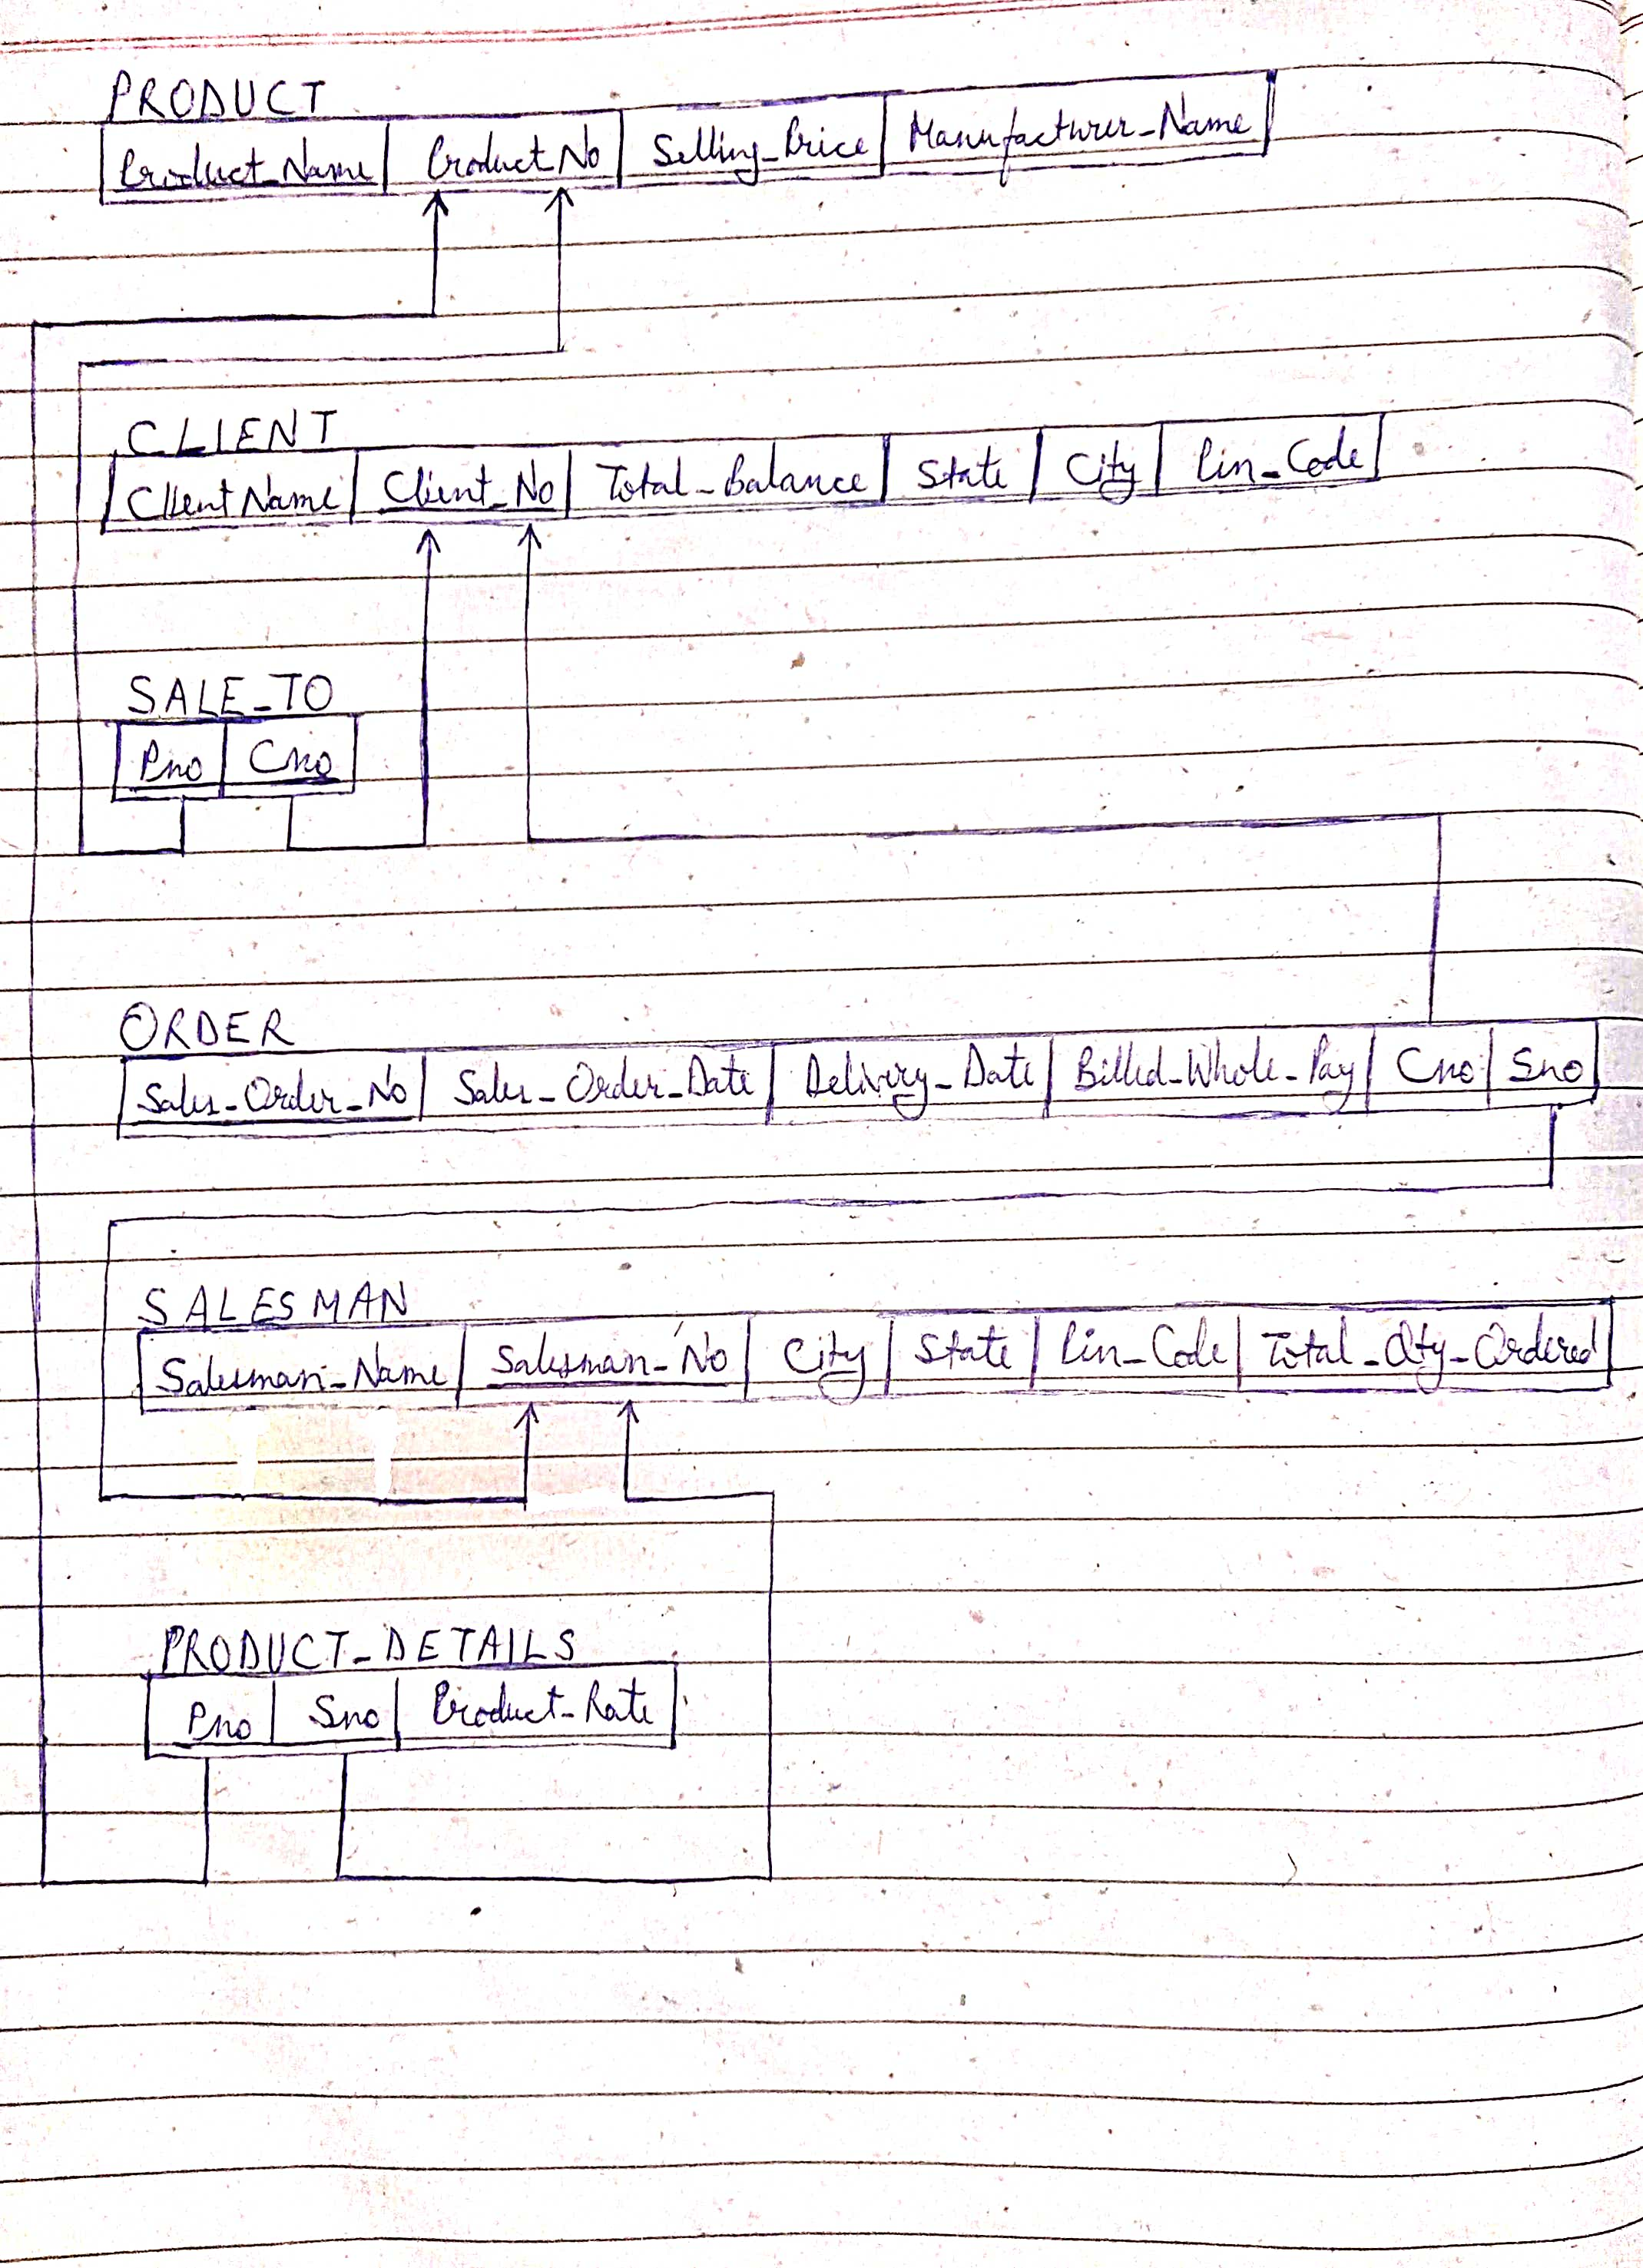 PRODUCT
Product_Name Product_No Selling_Price Manufacturer_Name
CLIENT
Client Name Client_No Total_Balance State City Pin_Code
SALE_TO
Pno Cno
ORDER
Sales_Order_No Sales_Order_Date Delivery_Date Billed_Whole_Pay Cno Sno
SALESMAN
Salesman_Name Salesman_No City State Pin_Code Total_Qty_Ordered
PRODUCT_DETAILS
Pno Sno Product_Rate